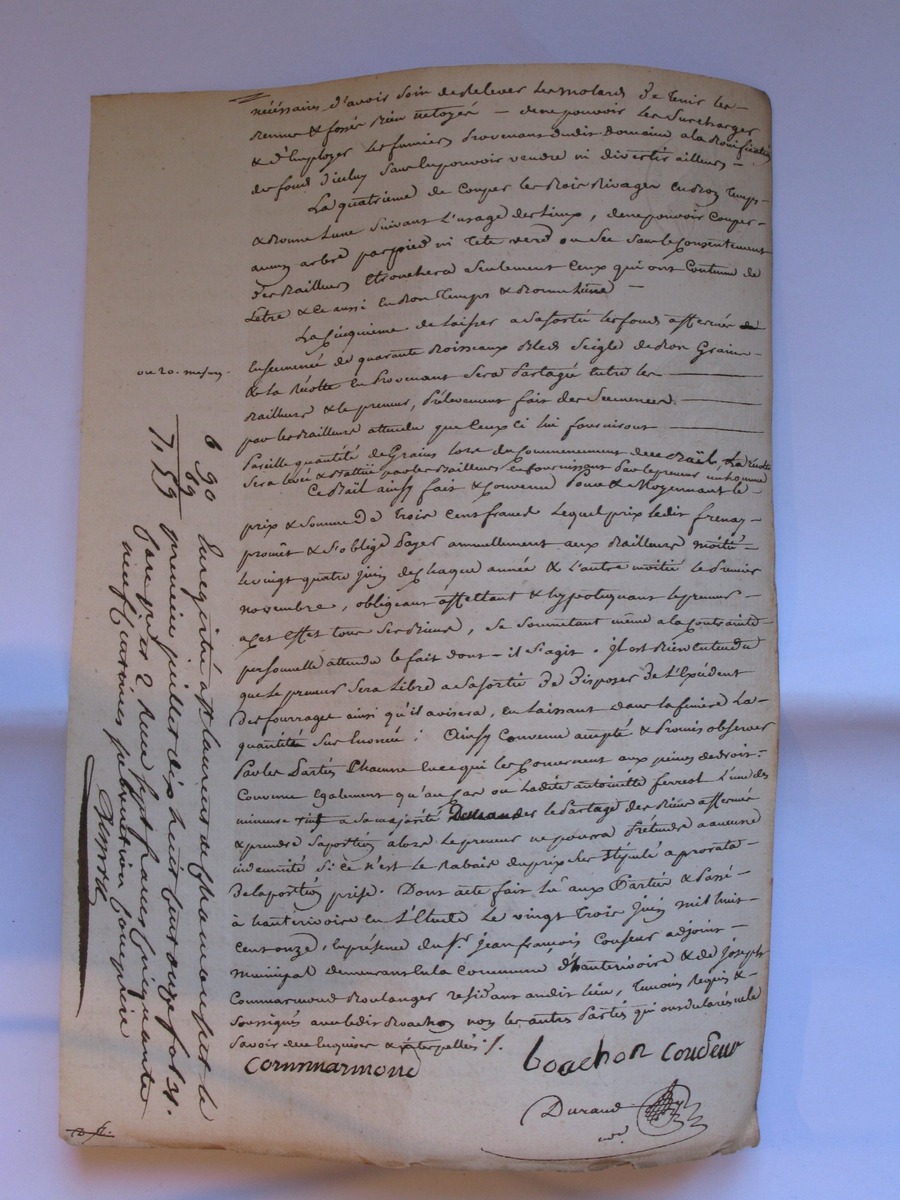 nécéssaires d'avoir soin de Relever les molards de tenir les
Rennes & fossés Bien netoyés — de ne pouvoir les surcharger
& d'Employer les fumiers Provenant dudit Domaine a la Bonification
des fond d'icluy sans le pouvoir vendre ni divertir ailleurs —
La quatrieme de Couper les Bois Rivages en Bon temps
& Bonne Lune suivant l'usage des Lieux, de ne pouvoir Couper
aucun arbre par pied ni Tete verd ou sec sans le Consentement
des Bailleurs Etronchera seulement Ceux qui ont Coutume de
Lêtre & ce aussi en Bon temps & Bonne Lune —
La Cinquieme de laisser a sa sortie les fonds affermés
Ensemencés de quarante Boisseaux Bled Seigle de Bon Grain
ou 20. mesures.
& la Récolte en Provenant sera Partagée entre les
Bailleurs & le preneur, Prélevement fait des Semences
par les Bailleurs attendu que Ceux ci lui fourniront
Pareille quantité de Grains lors du Commencement du Bail, La Récolte
sera levée & Battue par les Bailleurs en fournissant par le preneur un homme
Ce Bail ainsy fait & Convenu Pour & Moyennant le
prix & Somme De trois Cent francs Lequel prix ledit frenay
promet & s'oblige Payer annuellement aux Bailleurs moitié
le vingt quatre juin de Chaque année & l'autre moitié le Premier
novembre, obligeant affectant & hypotequant le preneur
a cet effet tous ses Biens, se soumetant même a la Contrainte
personnelle attendu le fait dont il s'agit. Il est Bien Entendu
que le preneur sera Libre a sa sortie De Disposer de l'Excédent
des fourrages ainsi qu'il avisera, en laissant dans la feniere La
quantité sus Enoncée; Ainsy Convenu accepté & Promis observer
Par les Parties Chacune en ce qui les Concernent aux peines de droit.
Convenu Egalement qu'au Cas ou Ladite antoinette ferrest l'une des
mineures vint a sa majorité Demander le Partage des Biens affermés
& prendre sa portion alors Le preneur ne pourra Prétendre a aucune
indemnité si ce n'est le Rabais du prix ci dessus Stipulé a prorata
De la portion prise. Dont acte fait lu aux Parties & Passé
à hauterivoire en l'Etude le vingt trois juin mil huit
Cent onze, En présence du Sr. jean françois Couseur adjoint
municipal demeurant en la Commune d'hauterivoire & de joseph
Commarmond Boulanger residant audit lieu, temoins Requis &
soussignés avec ledit Boachon non les autres Parties qui ont déclarés ne le
savoir de ce Enquises & interpellées ./.
Commarmond
boachon Couseur
Durand
not.
6 90
69
7, 59
Enregistré a St Laurent de Chamousset le
premier juillet dix huit cent onze fol 31.
Case Reçu sept francs cinquante
neuf centimes subvention comprise